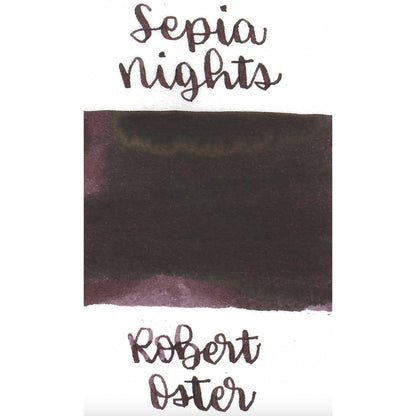 Sepia
Nights
Robert
Oster